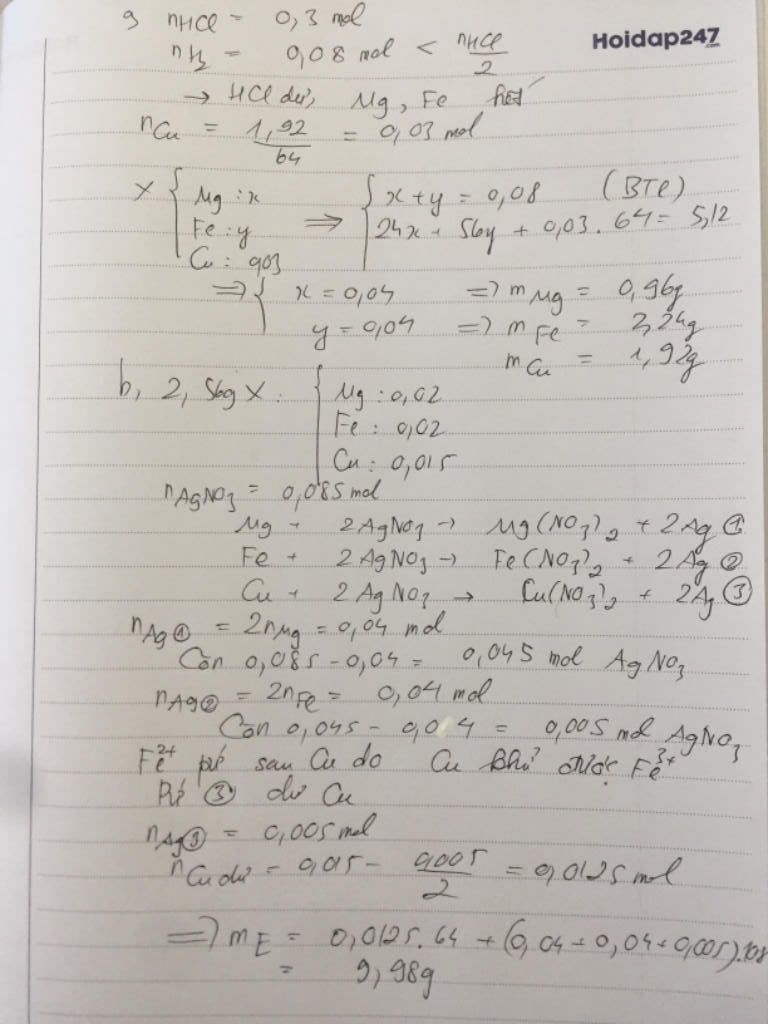 a, nHCl = 0,3 mol
Hoidap247.com
nH2 = 0,08 mol < nHCl/2
→ HCl dư, Mg, Fe hết
nCu = 1,92/64 = 0,03 mol
X { Mg : x ⇒ { x + y = 0,08 (BTe)
Fe : y 24x + 56y + 0,03 . 64 = 5,12
Cu : 0,03
⇒ { x = 0,04 => mMg = 0,96g
y = 0,04 => mFe = 2,24g
mCu = 1,92g
b, 2,56g X : { Mg : 0,02
Fe : 0,02
Cu : 0,015
nAgNO3 = 0,085 mol
Mg + 2AgNO3 → Mg(NO3)2 + 2Ag ①
Fe + 2AgNO3 → Fe(NO3)2 + 2Ag ②
Cu + 2AgNO3 → Cu(NO3)2 + 2Ag ③
nAg① = 2nMg = 0,04 mol
Còn 0,085 - 0,04 = 0,045 mol AgNO3
nAg② = 2nFe = 0,04 mol
Còn 0,045 - 0,04 = 0,005 mol AgNO3
Fe2+ pứ sau Cu do Cu khử được Fe3+
Pứ ③ dư Cu
nAg③ = 0,005 mol
nCu dư = 0,015 - 0,005/2 = 0,0125 mol
=> mE = 0,0125.64 + (0,04 + 0,04 + 0,005).108
= 9,98g